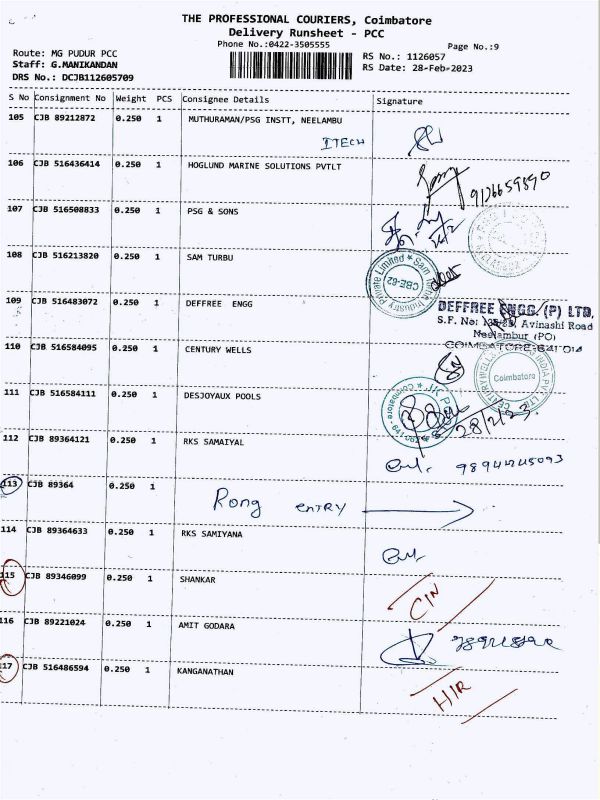 THE PROFESSIONAL COURIERS, Coimbatore
Delivery Runsheet - PCC
Phone No.:0422-3505555
Page No.:9
Route: MG PUDUR PCC
Staff: G.MANIKANDAN
DRS No.: DCJB112605709
RS No.: 1126057
RS Date: 28-Feb-2023
S No Consignment No Weight PCS Consignee Details Signature
105 CJB 89212872 0.250 1 MUTHURAMAN/PSG INSTT, NEELAMBU
ITECH
106 CJB 516436414 0.250 1 HOGLUND MARINE SOLUTIONS PVTLT
9126659890
107 CJB 516508833 0.250 1 PSG & SONS
108 CJB 516213820 0.250 1 SAM TURBU
Sam Turbo Industry Private Limited
CBE-62
109 CJB 516483072 0.250 1 DEFFREE ENGG
DEFFREE ENGG. (P) LTD,
S.F. No: Avinashi Road
Neelambur (PO)
COIMBATORE-641 014
110 CJB 516584095 0.250 1 CENTURY WELLS
Coimbatore
111 CJB 516584111 0.250 1 DESJOYAUX POOLS
28/2/23.
112 CJB 89364121 0.250 1 RKS SAMAIYAL
113 CJB 89364 0.250 1 Rong entry
114 CJB 89364633 0.250 1 RKS SAMIYANA
115 CJB 89346099 0.250 1 SHANKAR
CIN
116 CJB 89221024 0.250 1 AMIT GODARA
117 CJB 516486594 0.250 1 KANGANATHAN
HIR